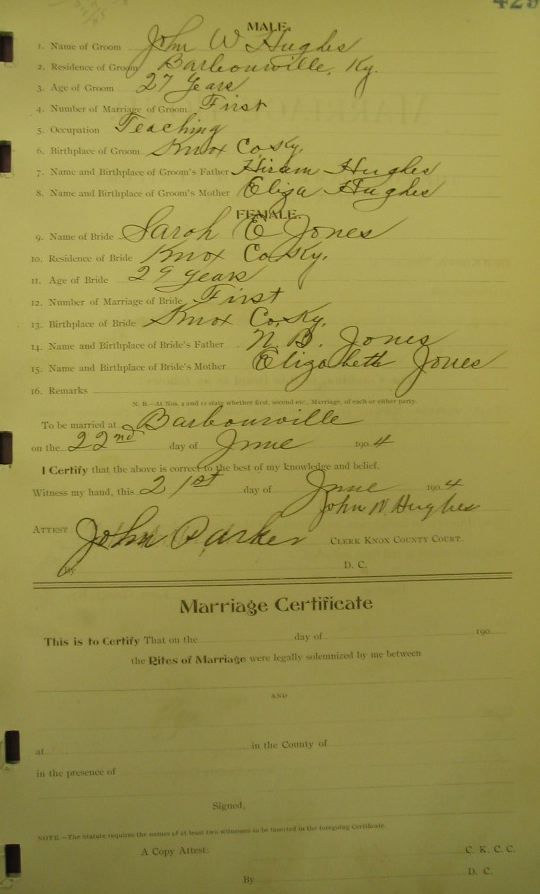 429
MALE.
1. Name of Groom John W Hughes
2. Residence of Groom Barbourville, Ky.
3. Age of Groom 27 Years
4. Number of Marriage of Groom First
5. Occupation Teaching
6. Birthplace of Groom Knox Co Ky.
7. Name and Birthplace of Groom's Father Hiram Hughes
8. Name and Birthplace of Groom's Mother Eliza Hughes
FEMALE.
9. Name of Bride Sarah E Jones
10. Residence of Bride Knox Co Ky.
11. Age of Bride 29 years
12. Number of Marriage of Bride First
13. Birthplace of Bride Knox Co. Ky.
14. Name and Birthplace of Bride's Father N. B. Jones
15. Name and Birthplace of Bride's Mother Elizabeth Jones
16. Remarks
N. B.—At Nos. 4 and 12 state whether first, second etc., Marriage, of each or either party.
To be married at Barbourville
on the 22nd day of June 1904
I Certify that the above is correct to the best of my knowledge and belief.
Witness my hand, this 21st day of June 1904
John W. Hughes
ATTEST John Parker CLERK KNOX COUNTY COURT.
By D. C.
Marriage Certificate
This is to Certify That on the day of 190
the Rites of Marriage were legally solemnized by me between
AND
at in the County of
in the presence of
Signed,
NOTE.—The Statute requires the names of at least two witnesses to be inserted in the foregoing Certificate.
A Copy Attest: C. K. C. C.
By D. C.